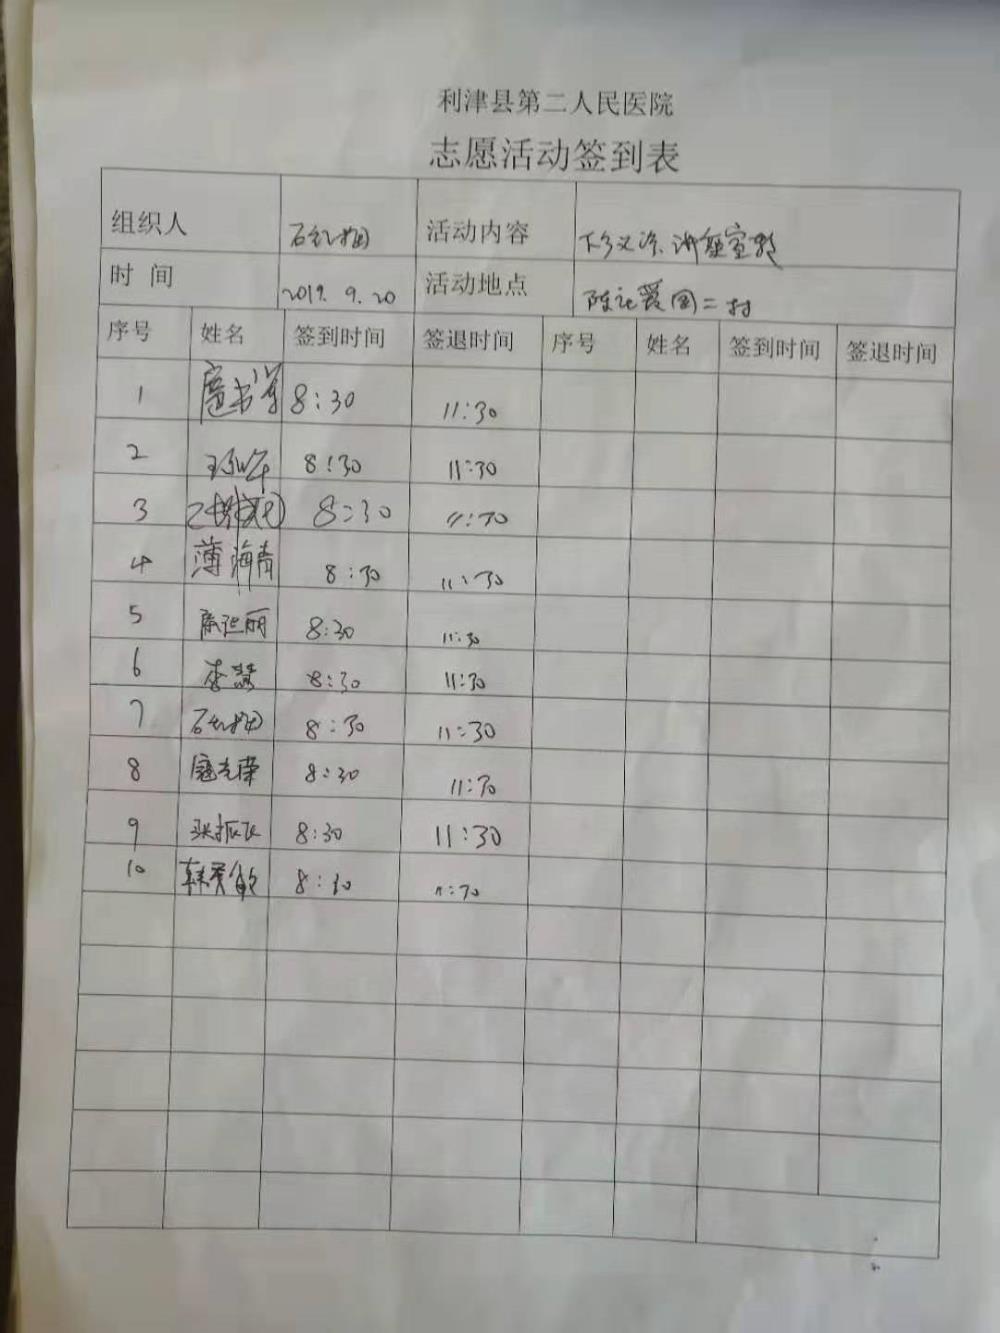 利津县第二人民医院
志愿活动签到表
组织人 石红梅 活动内容 下乡义诊、讲座宣教
时 间 2019.9.20 活动地点 二村
序号 姓名 签到时间 签退时间 序号 姓名 签到时间 签退时间
1 8:30 11:30
2 8:30 11:30
3 8:30 11:30
4 薄海青 8:30 11:30
5 8:30 11:30
6 李慧 8:30 11:30
7 石红梅 8:30 11:30
8 8:30 11:30
9 张振飞 8:30 11:30
10 韩秀敏 8:30 11:30